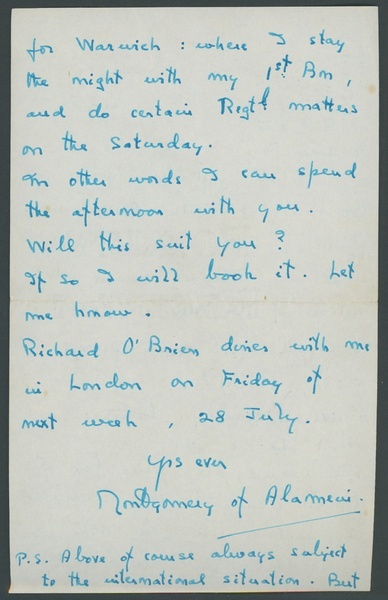 for Warwich : where I stay
the night with my 1st Bn,
and do certain Regtl matters
on the Saturday.
In other words I can spend
the afternoon with you.
Will this suit you?
If so I will book it. Let
me know.
Richard O'Brien dines with me
in London on Friday of
next week, 28 July.
Yrs ever
Montgomery of Alamein.
P.S. Above of course always subject
to the international situation. But